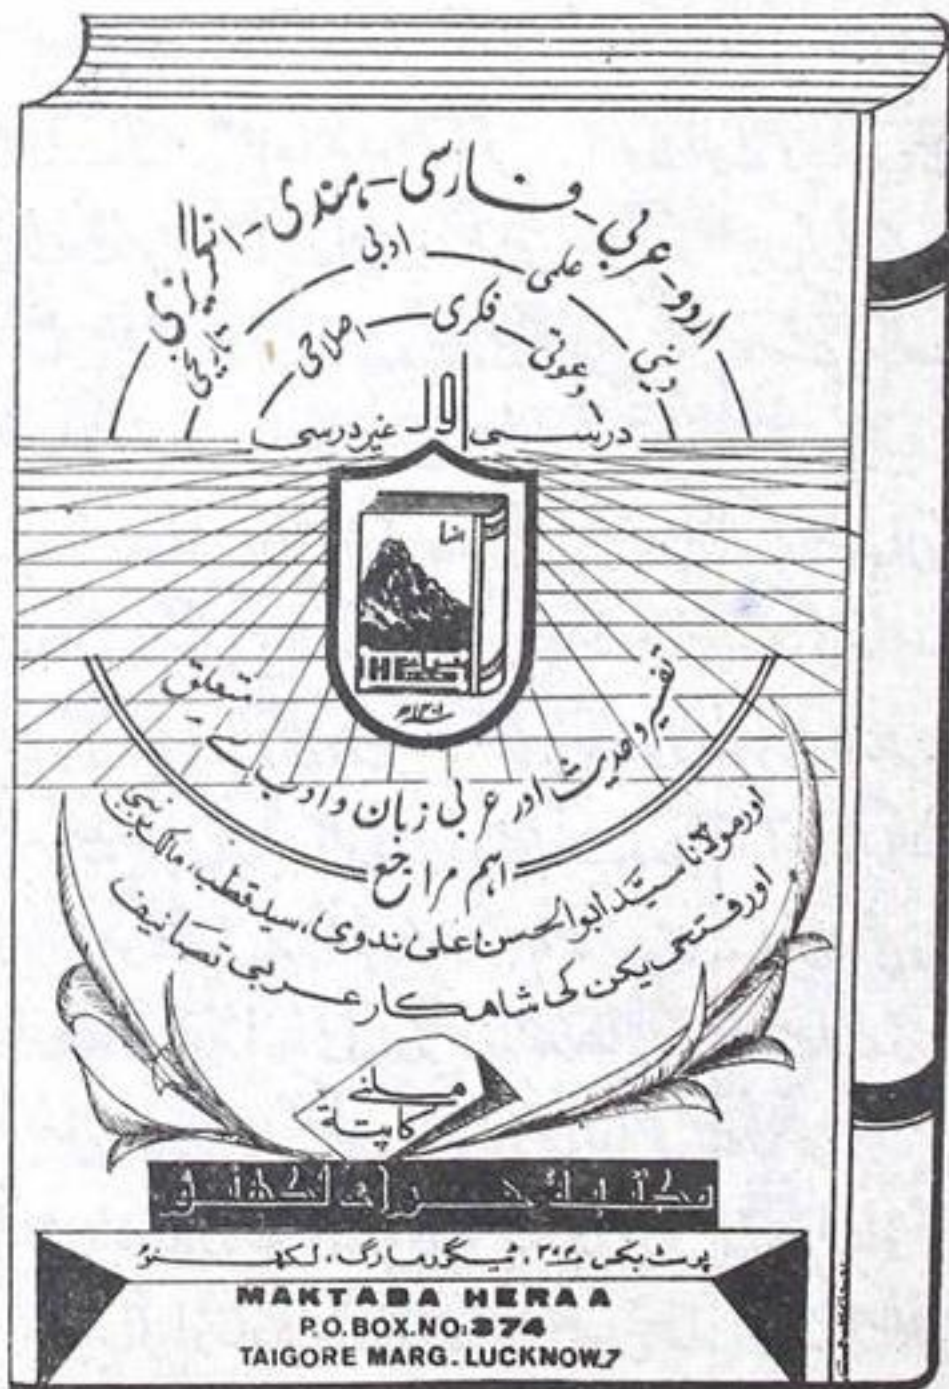 اردو - عربی - فارسی - ہندی - انگریزی
دینی - علمی - ادبی - تاریخی
دعوتی - فکری - اصلاحی
درسی اور غیر درسی
حرا
HERA
تفسیر وحدیث اور عربی زبان وادب سے متعلق
اہم مراجع
اور مولانا سیّد ابوالحسن علی ندوی، سید قطب، مالک بن نبی
اور فتحی یکن کی شاہکار عربی تصانیف
ملنے
کا پتہ
مکتبہ حراء لکھنؤ
پوسٹ بکس ۳۷۴، ٹیگور مارگ، لکھنؤ
MAKTABA HERAA
P.O.BOX.NO:374
TAIGORE MARG. LUCKNOW.7